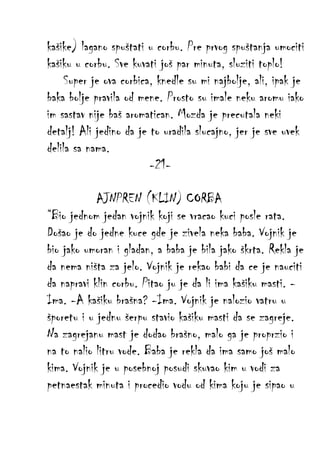 kašike) lagano spuštati u corbu. Pre prvog spuštanja umociti
kašiku u corbu. Sve kuvati još par minuta, sluziti toplo!
Super je ova corbica, knedle su mi najbolje, ali, ipak je
baka bolje pravila od mene. Prosto su imale neku aromu iako
im sastav nije baš aromatican. Mozda je precutala neki
detalj! Ali jedino da je to uradila slucajno, jer je sve uvek
delila sa nama.
-21-
AJNPREN (KLIN) CORBA
"Bio jednom jedan vojnik koji se vracao kuci posle rata.
Došao je do jedne kuce gde je zivela neka baba. Vojnik je
bio jako umoran i gladan, a baba je bila jako škrta. Rekla je
da nema ništa za jelo. Vojnik je rekao babi da ce je nauciti
da napravi klin corbu. Pitao ju je da li ima kašiku masti. -
Ima. -A kašiku brašna? -Ima. Vojnik je nalozio vatru u
šporetu i u jednu šerpu stavio kašiku masti da se zagreje.
Na zagrejanu mast je dodao brašno, malo ga je proprzio i
na to nalio litru vode. Baba je rekla da ima samo još malo
kima. Vojnik je u posebnoj posudi skuvao kim u vodi za
petnaestak minuta i procedio vodu od kima koju je sipao u